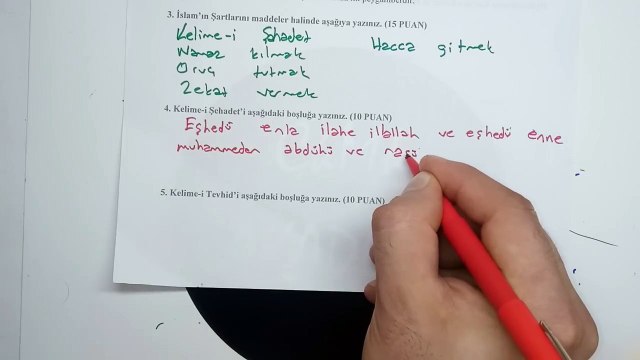 peygamberdir.
3. İslam'ın Şartlarını maddeler halinde aşağıya yazınız. (15 PUAN)
Kelime-i Şehadet
Hacca gitmek
Namaz kılmak
Oruç tutmak
Zekat vermek
4. Kelime-i Şehadet'i aşağıdaki boşluğa yazınız. (10 PUAN)
Eşhedü enla ilahe ilallah ve eşhedü enne
muhammeden abdühü ve rasü
5. Kelime-i Tevhid'i aşağıdaki boşluğa yazınız. (10 PUAN)